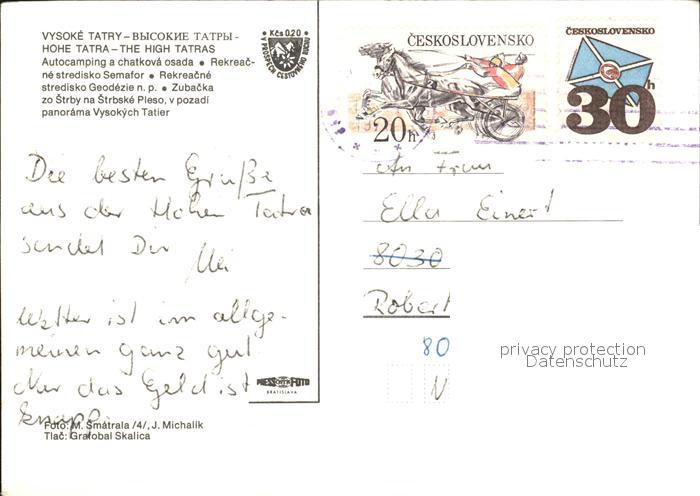 VYSOKÉ TATRY – ВЫСОКИЕ ТАТРЫ -
HOHE TATRA – THE HIGH TATRAS
Autocamping a chatková osada • Rekreač-
né stredisko Semafor • Rekreačné
stredisko Geodézie n. p. • Zubačka
zo Štrby na Štrbské Pleso, v pozadí
panoráma Vysokých Tatier
Kčs 0,20
V PROSPECH CESTOVNÉHO RUCHU
ČESKOSLOVENSKO
20h
ČESKOSLOVENSKO
30h
Die besten Grüße
aus der Hohen Tatra
sendet Dir
Wetter ist im allge-
meinen ganz gut
Nur das Geld ist
knapp.
An Frau
Ella Einert
8030
Robert
80
N
privacy protection
Datenschutz
PRESSFOTO
BRATISLAVA
Foto: M. Smatrala /4/, J. Michalík
Tlač: Grafobal Skalica